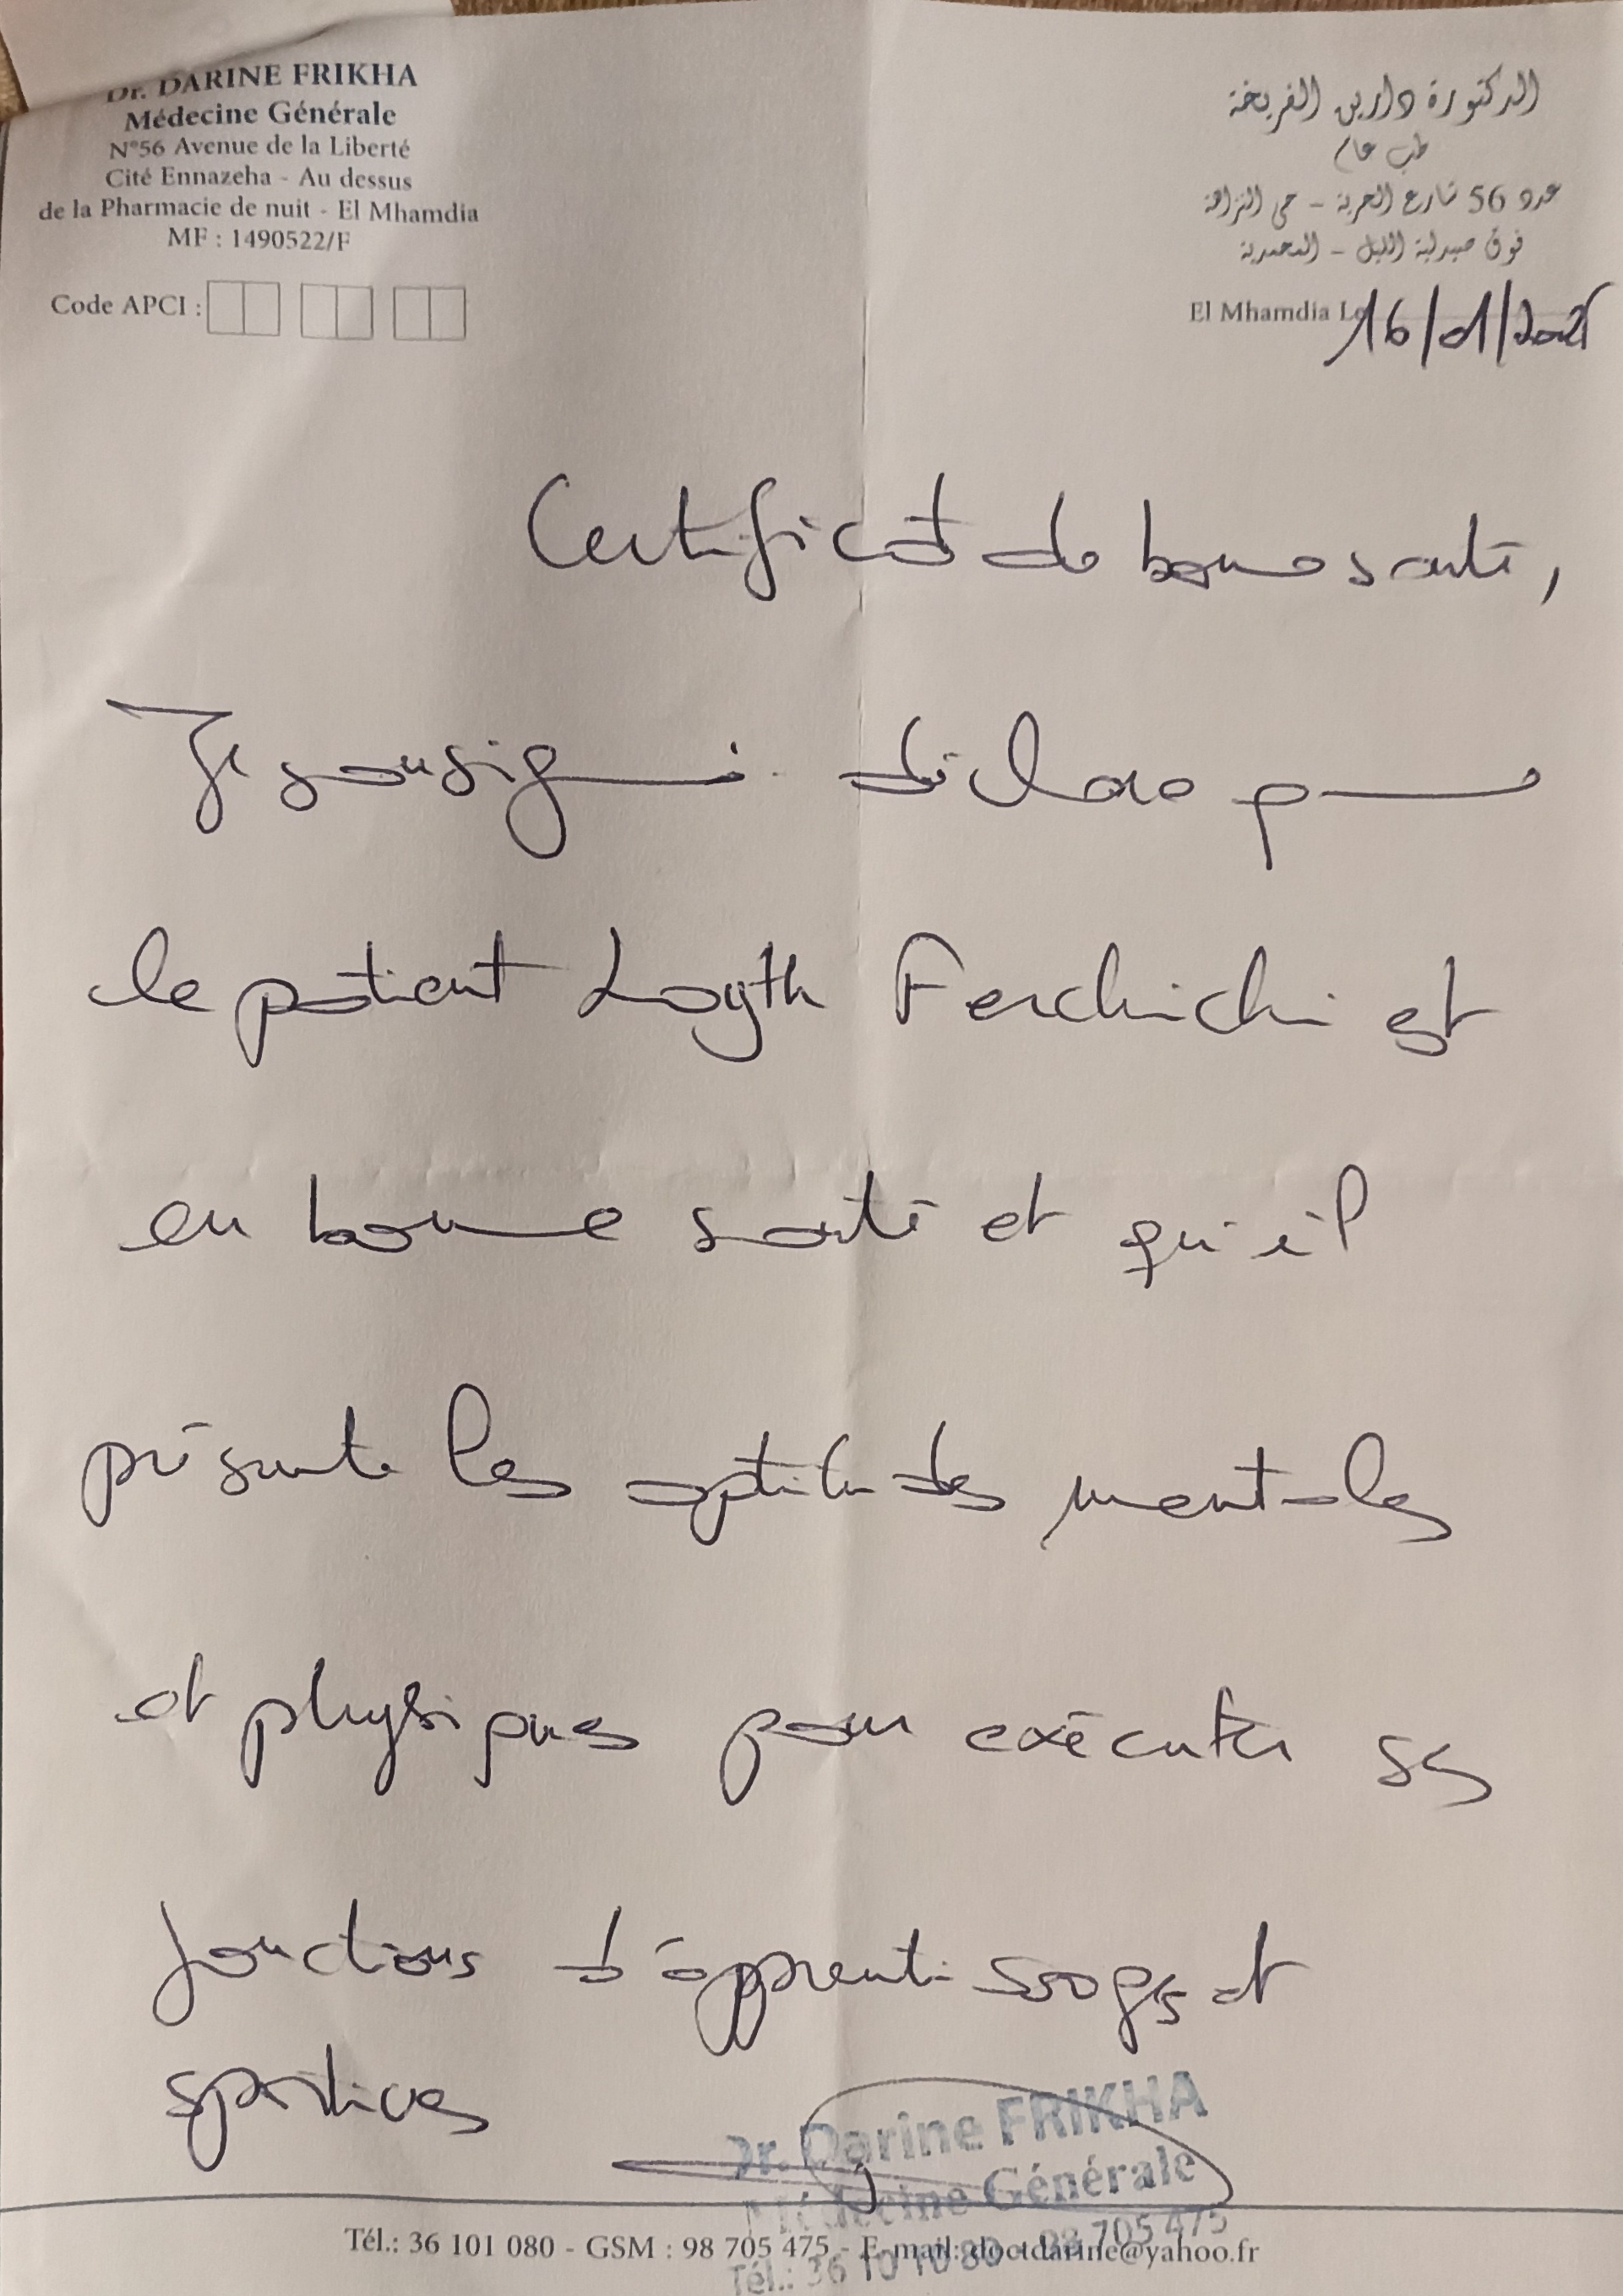 Dr. DARINE FRIKHA
Médecine Générale
N°56 Avenue de la Liberté
Cité Ennazeha - Au dessus
de la Pharmacie de nuit - El Mhamdia
MF : 1490522/F
Code APCI :
الدكتورة دارين الفريخة
طب عام
عدد 56 شارع الحرية - حي النزاهة
فوق صيدلية الليل - المحمدية
El Mhamdia Le 16/01/202
Certificat de bonne santé,
Je sousigné déclare que
le patient Layth Ferchichi est
en bonne santé et qu'il
présente les aptitudes mentales
et physiques pour exécuter ses
fonctions d'apprentissages et
sportives
Dr. Darine FRIKHA
Médecine Générale
Tél.: 36 10 10 80 - 98 705 475
Tél.: 36 101 080 - GSM : 98 705 475 - E-mail: doctdarine@yahoo.fr